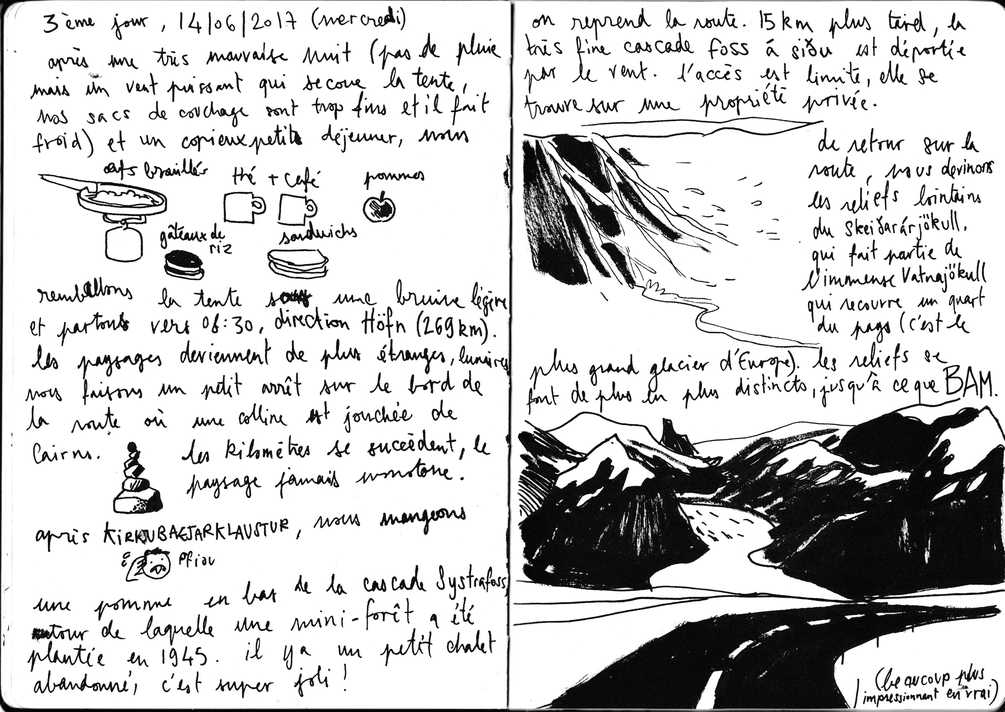 3ème jour, 14/06/2017 (mercredi)
après une très mauvaise nuit (pas de pluie
mais un vent puissant qui secoue la tente,
nos sacs de couchage sont trop fins et il fait
froid) et un copieux petit déjeuner, nous
œufs brouillés
thé + café
pommes
gâteaux de
riz
sandwichs
remballons la tente sous une bruine légère
et partons vers 08:30, direction Höfn (269km).
les paysages deviennent de plus étranges, lunaires
nous faisons un petit arrêt sur le bord de
la route où une colline est jonchée de
Cairns.
les kilomètres se succèdent, le
paysage jamais monotone.
après KIRKJUBAEJARKLAUSTUR, nous mangeons
Pfiou
une pomme en bas de la cascade Systrafoss,
autour de laquelle une mini-forêt a été
plantée en 1945. il y a un petit chalet
abandonné, c'est super joli !
on reprend la route. 15km plus tard, la
très fine cascade foss á síðu est déportée
par le vent. l'accès est limité, elle se
trouve sur une propriété privée.
de retour sur la
route, nous devinons
les reliefs lointains
du Skeiðarárjökull,
qui fait partie de
l'immense Vatnajökull
qui recouvre un quart
du pays (c'est le
plus grand glacier d'Europe). les reliefs se
font de plus en plus distincts, jusqu'à ce que BAM.
(beaucoup plus
impressionnant en vrai)